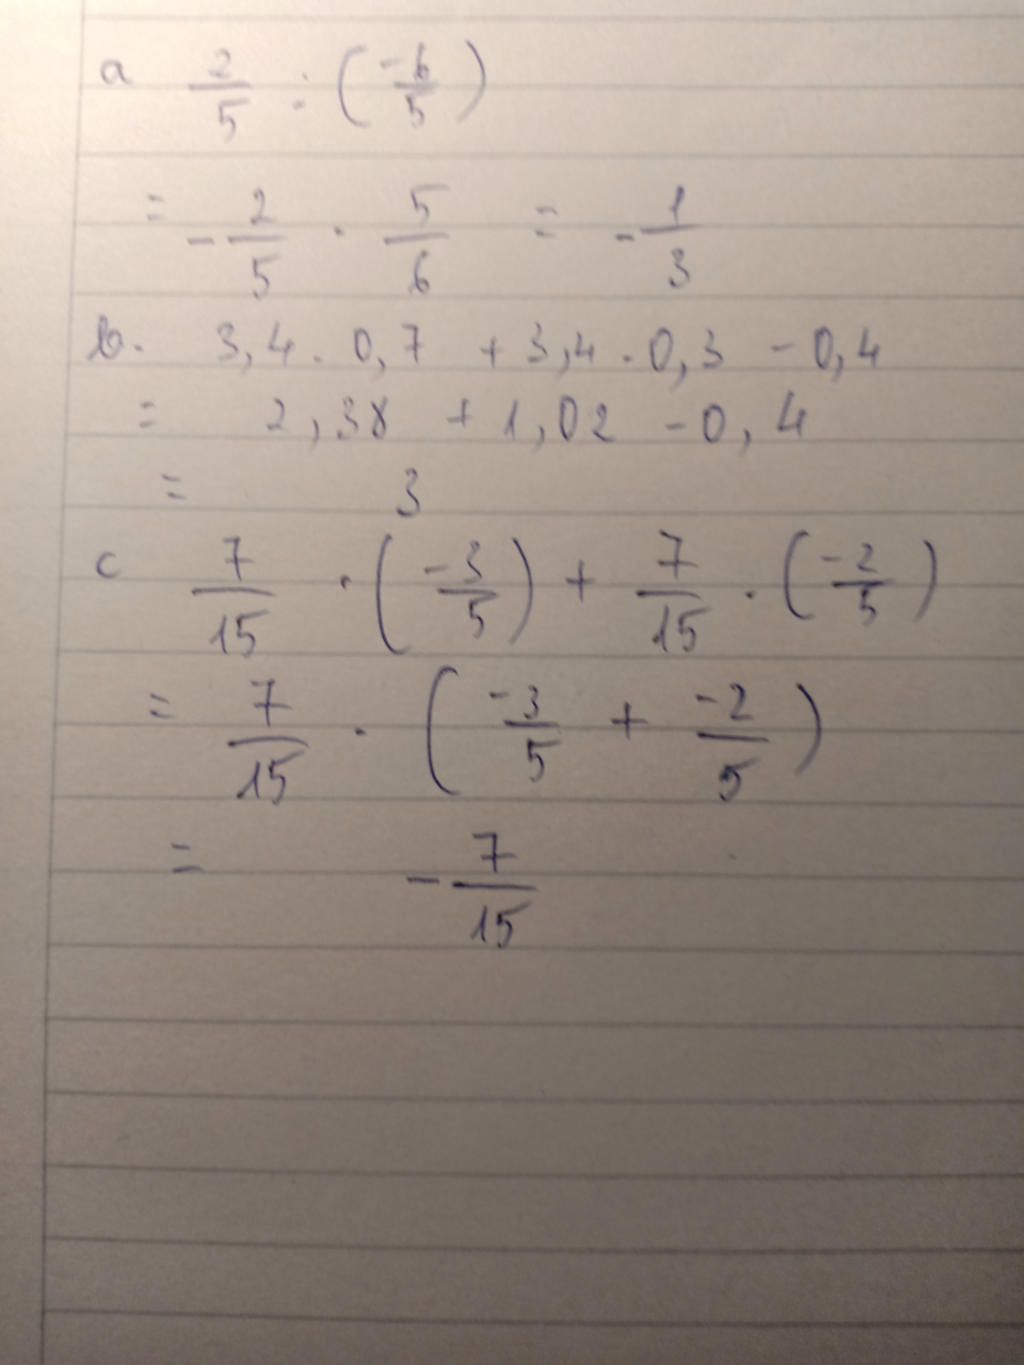 a 2/5 : (-6/5)
= -2/5 . 5/6 = -1/3
b. 3,4 . 0,7 + 3,4 . 0,3 - 0,4
= 2,38 + 1,02 - 0,4
= 3
c 7/15 . (-3/5) + 7/15 . (-2/5)
= 7/15 . (-3/5 + -2/5)
= -7/15